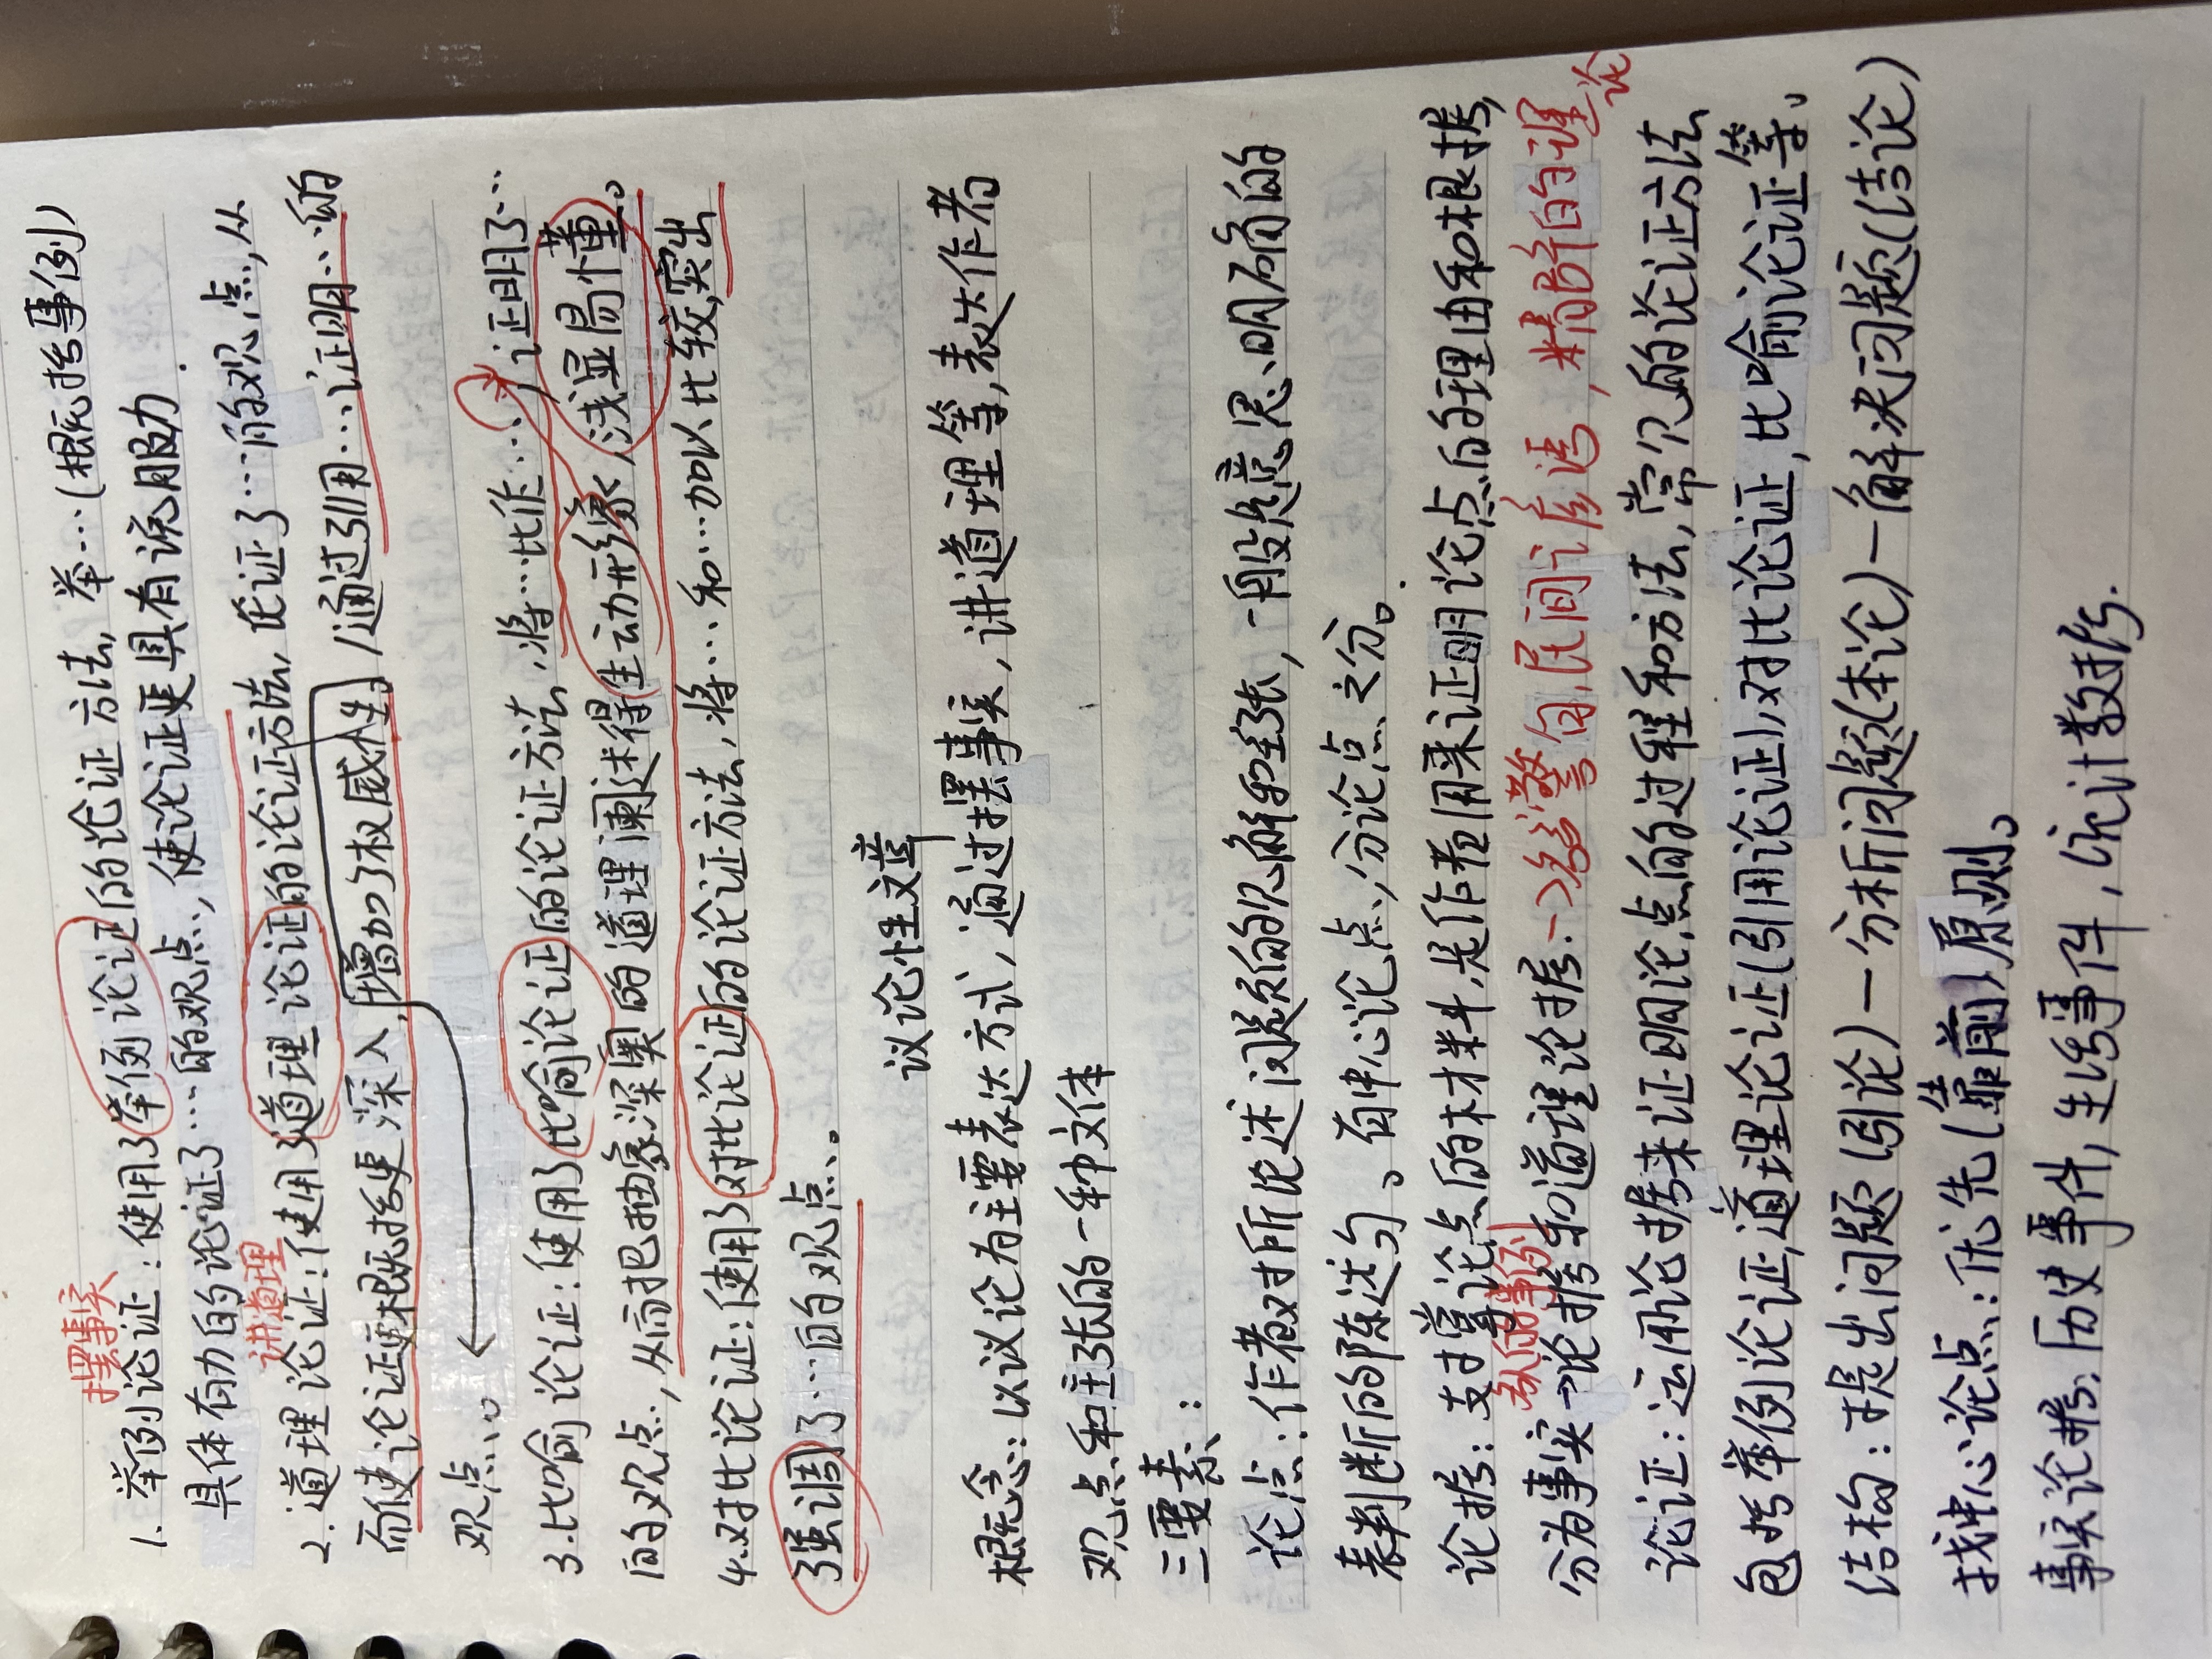 摆事实
1. 举例论证:使用了举例论证的论证方法,举…(概括事例)
具体有力的论证了…的观点,使论证更具有说服力.
讲道理
2.道理论证:使用了道理论证的论证方法,论证了…的观点,从
而使论证更概括更深入,增加了权威性。/通过引用…证明…的
观点。
3.比喻论证:使用了比喻论证的论证方法,将…比作…,证明了…
的观点,从而把抽象深奥的道理阐述得生动形象、浅显易懂。
4.对比论证:使用了对比论证的论证方法,将…和…加以比较,突出
强调了…的观点。
议论性文章
概念:以议论为主要表达方式,通过摆事实,讲道理等,表达作者
观点和主张的一种文体
三要素:
论点:作者对所论述问题的见解和主张,一般是意思明确的
表判断的陈述句。有中心论点,分论点之分。
论据:支撑论点的材料,是作者用来证明论点的理由和根据,
分为事实论据和道理论据.→名言警句,民间谚语,精辟的理论
论证:运用论据来证明论点的过程和方法,常见的论证方法
包括举例论证,道理论证(引用论证),对比论证,比喻论证等。
结构:提出问题(引论)—分析问题(本论)—解决问题(结论)
找中心论点:优先(靠前)原则。
事实论据:历史事件,生活事件,统计数据.